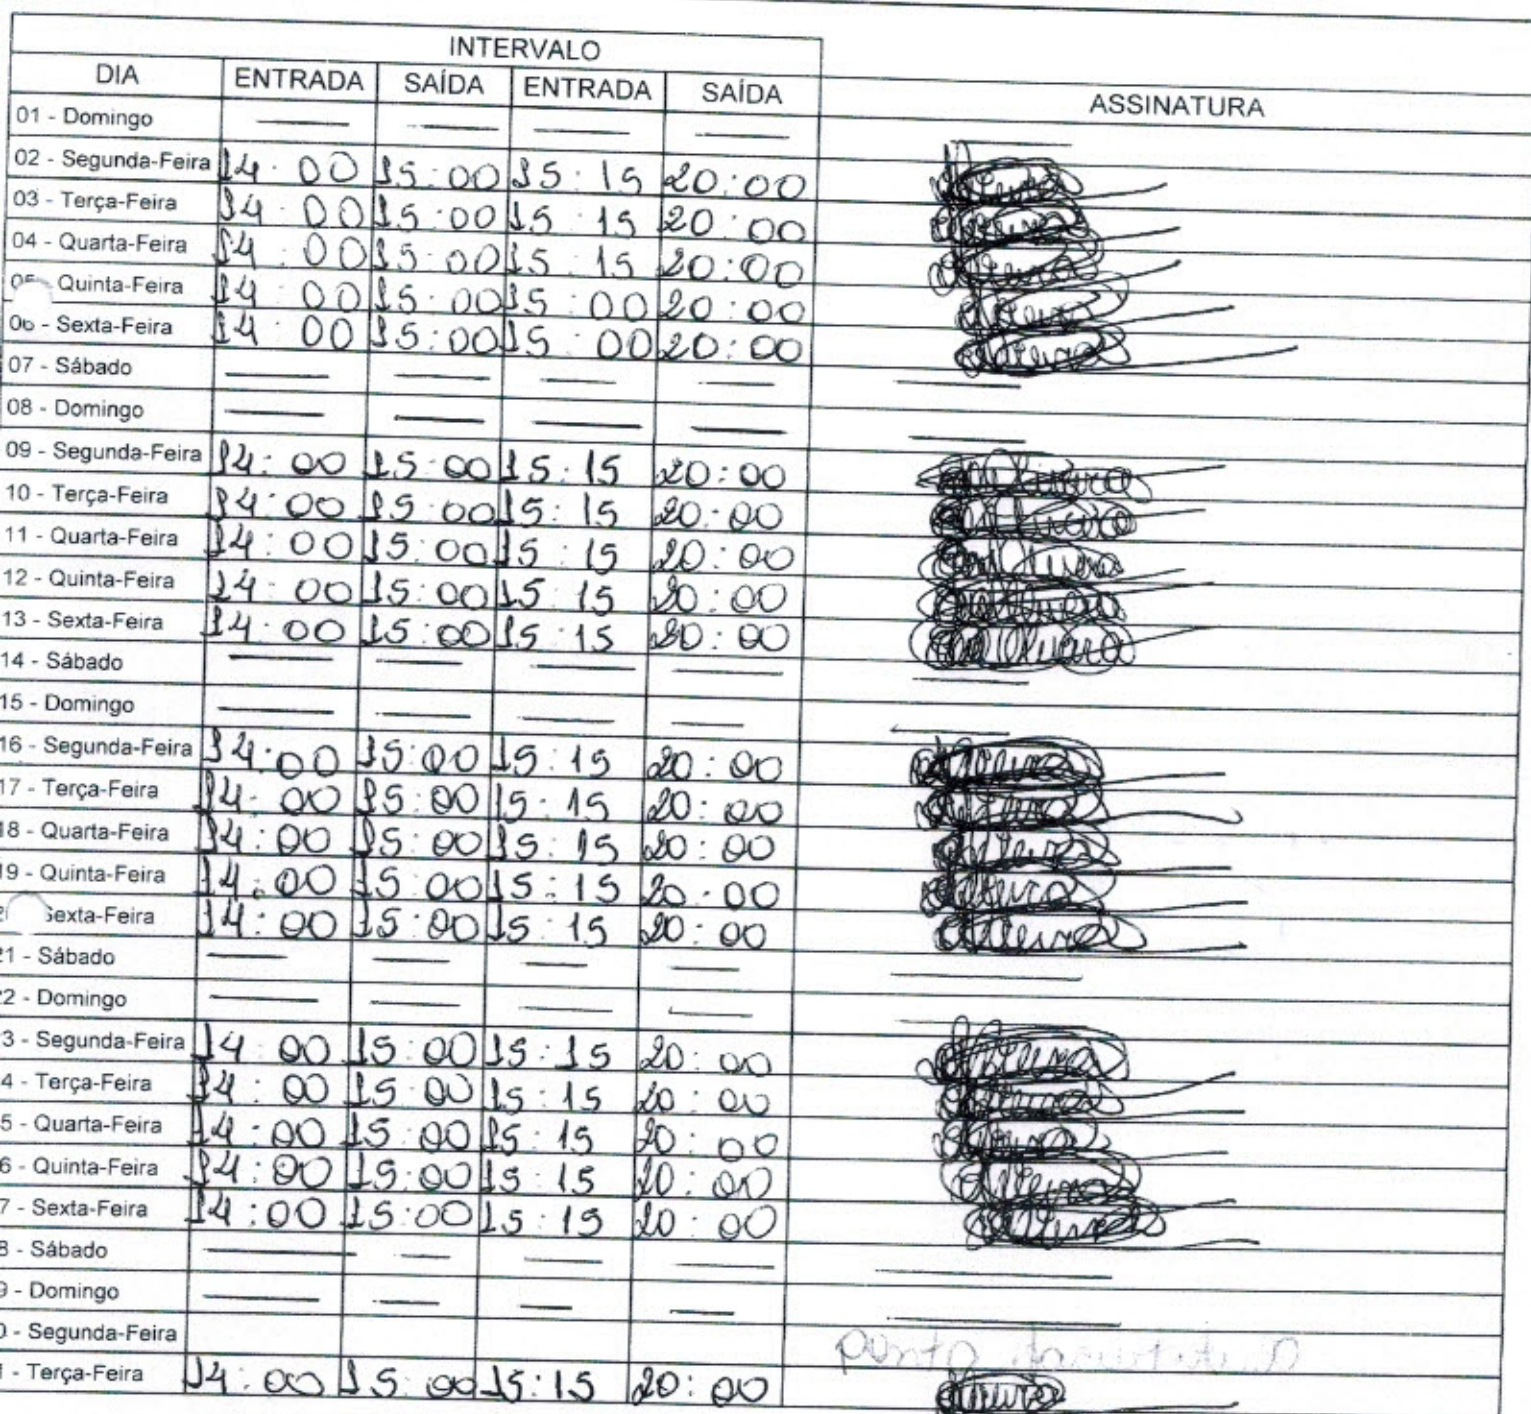 INTERVALO
DIA ENTRADA SAÍDA ENTRADA SAÍDA ASSINATURA
01 - Domingo
02 - Segunda-Feira 14:00 15:00 15:15 20:00
03 - Terça-Feira 14:00 15:00 15:15 20:00
04 - Quarta-Feira 14:00 15:00 15:15 20:00
Quinta-Feira 14:00 15:00 15:00 20:00
06 - Sexta-Feira 14:00 15:00 15:00 20:00
07 - Sábado
08 - Domingo
09 - Segunda-Feira 14:00 15:00 15:15 20:00
10 - Terça-Feira 14:00 15:00 15:15 20:00
11 - Quarta-Feira 14:00 15:00 15:15 20:00
12 - Quinta-Feira 14:00 15:00 15:15 20:00
13 - Sexta-Feira 14:00 15:00 15:15 20:00
14 - Sábado
15 - Domingo
16 - Segunda-Feira 14:00 15:00 15:15 20:00
17 - Terça-Feira 14:00 15:00 15:15 20:00
18 - Quarta-Feira 14:00 15:00 15:15 20:00
19 - Quinta-Feira 14:00 15:00 15:15 20:00
2 Sexta-Feira 14:00 15:00 15:15 20:00
21 - Sábado
22 - Domingo
3 - Segunda-Feira 14:00 15:00 15:15 20:00
4 - Terça-Feira 14:00 15:00 15:15 20:00
5 - Quarta-Feira 14:00 15:00 15:15 20:00
6 - Quinta-Feira 14:00 15:00 15:15 20:00
7 - Sexta-Feira 14:00 15:00 15:15 20:00
8 - Sábado
9 - Domingo
0 - Segunda-Feira ponto facultativo
1 - Terça-Feira 14:00 15:00 15:15 20:00